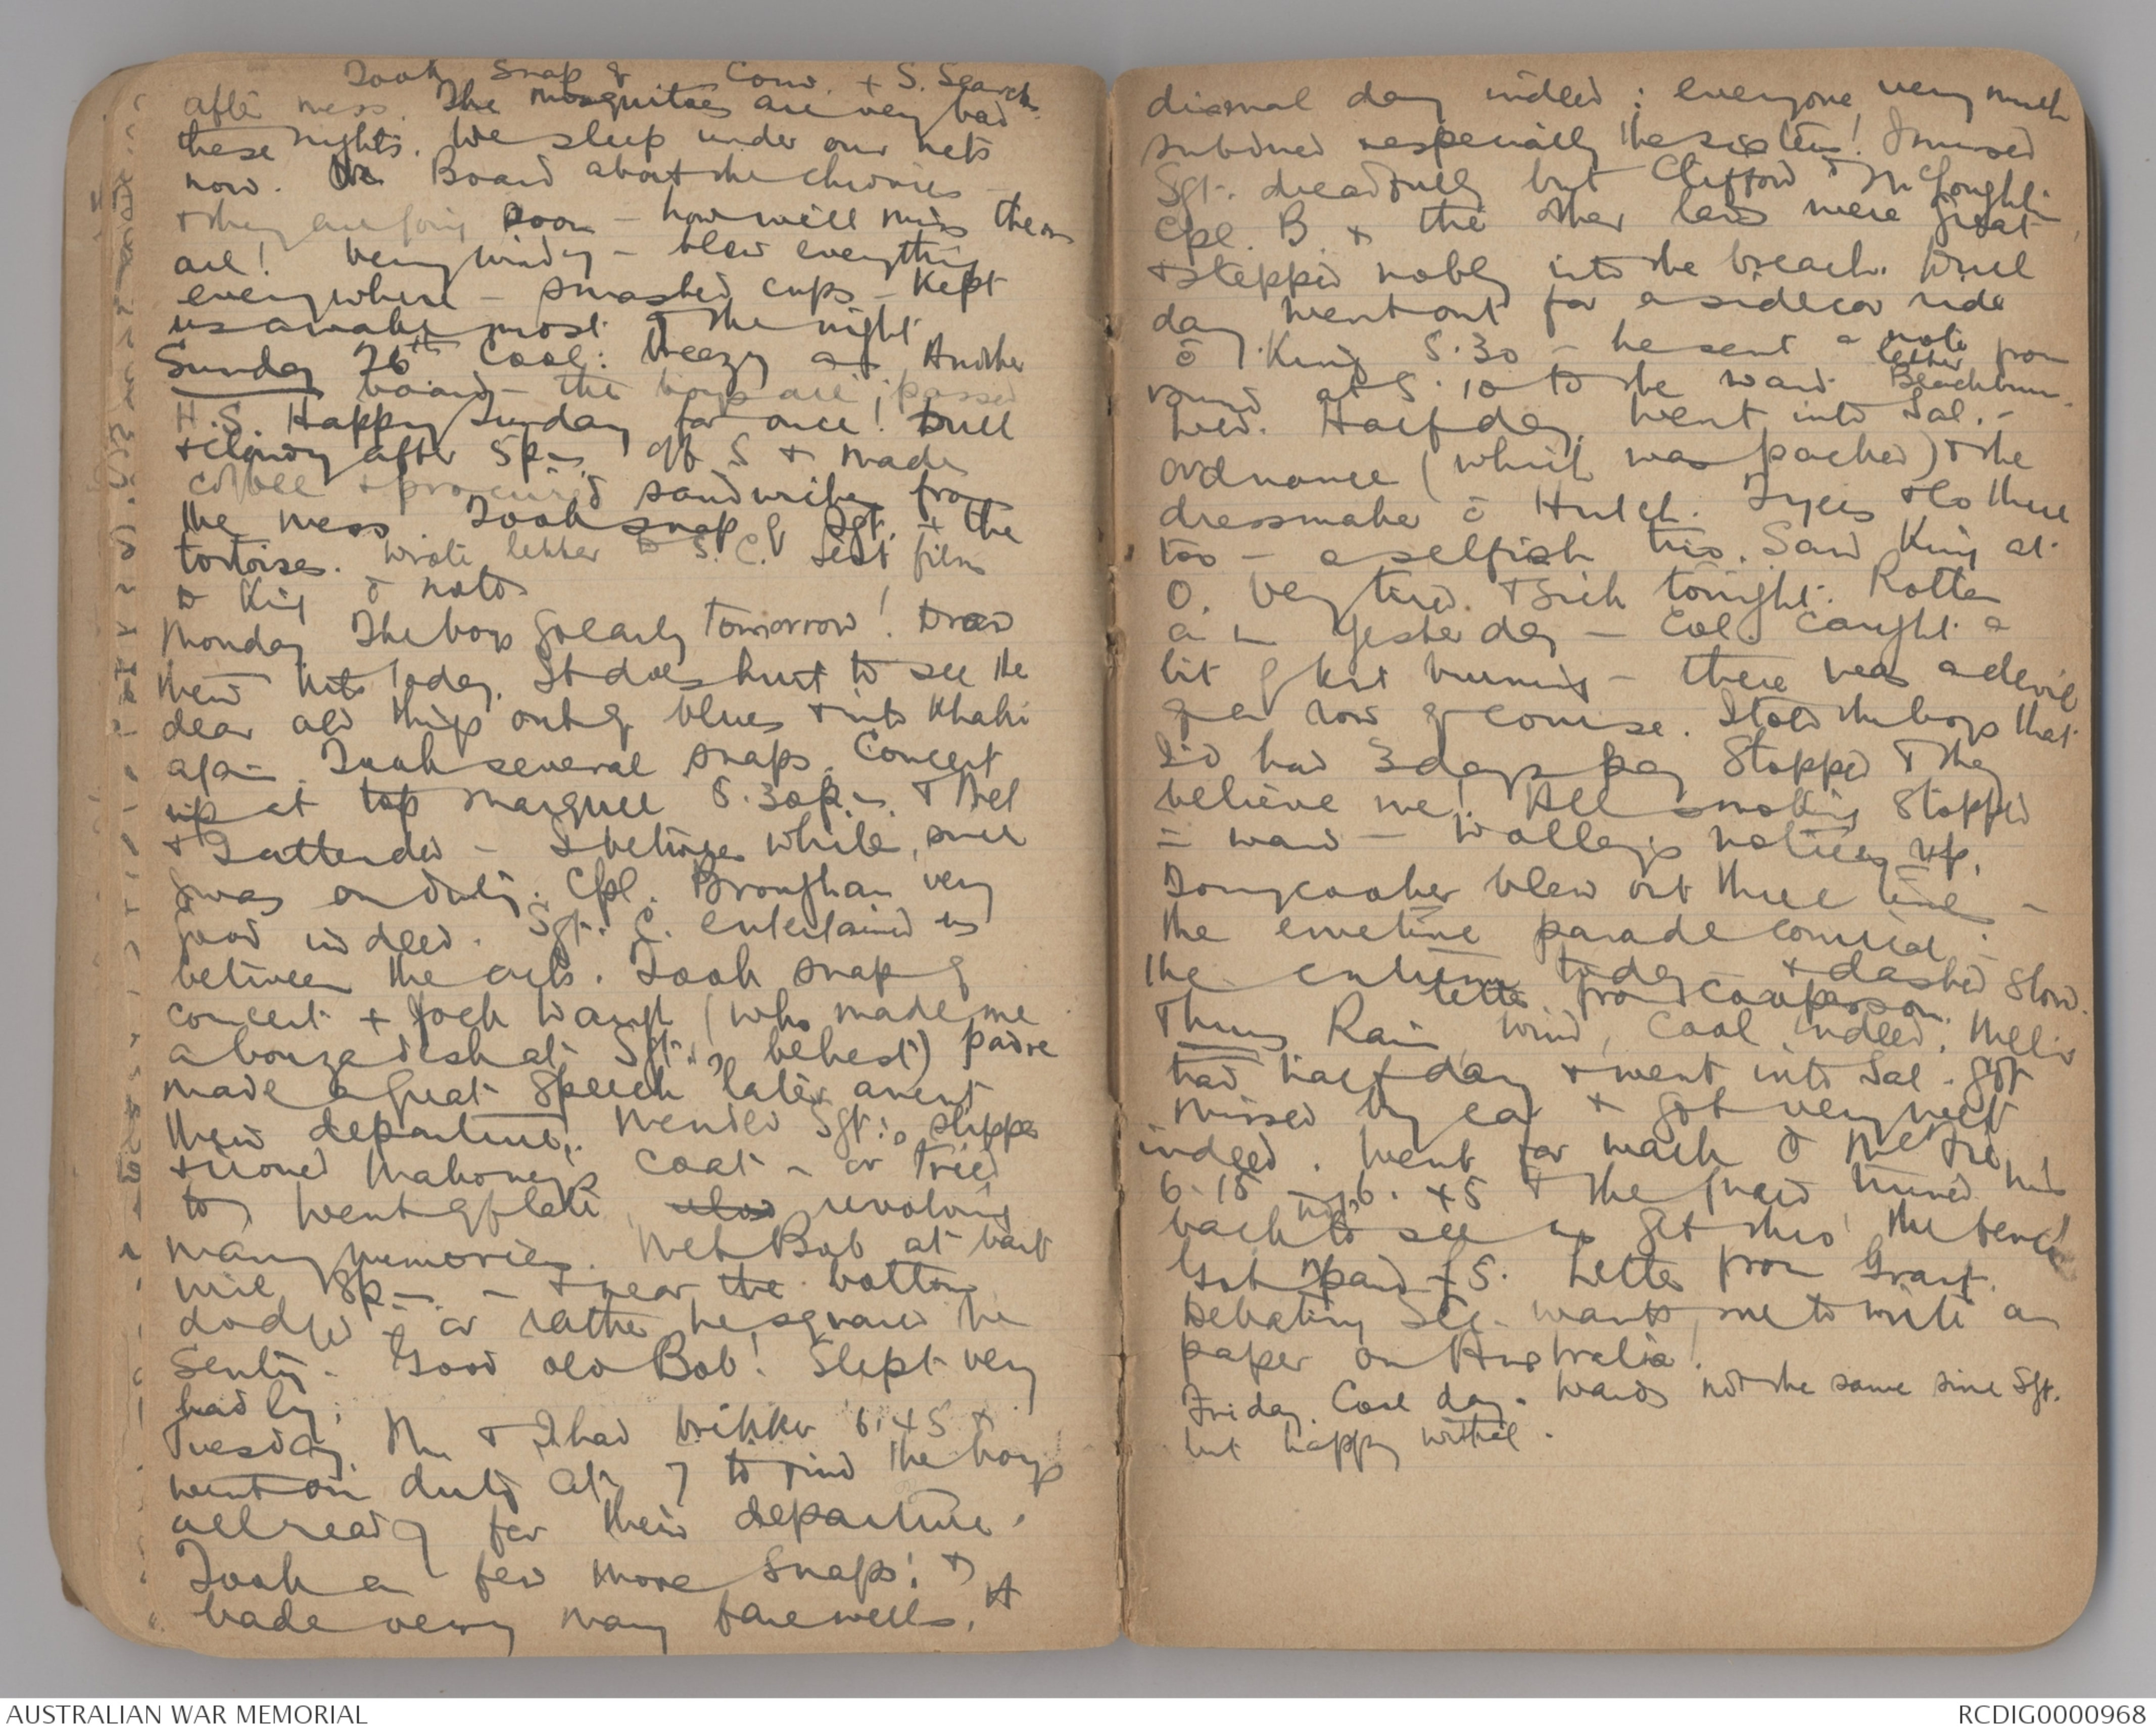 Took snap of Conv. + S. Search
after mess. The mosquitoes are very bad
these nights. We sleep under our nets
now. Board about the chronics -
+ they are going soon - how will miss them
all! Very windy - blew everything
everywhere - smashed cups - Kept
us awake most of the night.
Sunday 26th Cool: breezy Another
board - the boys are passed
H.S. Happy Sunday for once! Dull
+ cloudy after 5pm. Off 5 + made
coffee + procured sandwiches from
the mess. Took snap of Sgt. + the
tortoises. Wrote letter to S.C. Sent film
to King c̄ note
Monday The boys go early tomorrow! Drew
their kits today. It does hurt to see the
dear old things out of blues + into Khaki
again. Took several snaps. Concert
up at top marquee 5.30pm. + Mel
+ I attended - I between whiles, since
I was on duty. Cpl. Broughan very
good indeed. Sgt. C. entertained us
between the acts. Took snap of
concert + Jock Waugh (who made me
a bonza dish at Sgt.'s behest) padre
made a great speech later anent
their departure. Mended Sgt's slipper
+ ironed Mahoney's coat - or tried
to. Went of late, revolving
many memories. Met Bob at
8pm. - + near the bottom
dodged - or rather he squared the
Sentry. Good old Bob! Slept very
badly.
Tuesday. M. + I had brikker 6.45 +
went on duty at 7 to find the boys
all ready for their departure.
Took a few more snaps: +
bade very many farewells. A
dismal day indeed: everyone very much
subdued especially the sisters! I missed
Sgt. dreadfully but Clifford + McLoughlin
Cpl. B. + the other lads were great
+ stepped nobly into the breach. Dull
day. Went out for a sidecar ride
c̄ King 5.30 - he sent a note from
round at 5.10 to the ward. letter Blackburn.
Wed. Half day. Went into Sal. -
ordnance (which was packed) + the
dressmaker c̄ Hutch. Tyers + Co there
too - a selfish trio. Saw King at
O. Very tired + sick tonight. Rotten
a.m. yesterday - Col. caught a
bit of kit burning - there was a devil
of a row of course. I told the boys that
I'd had 3 days pay stopped + they
believe me! All smoking stopped
in ward - Wallays notices up.
Tommycooker blew out three times -
the emetine parade comical -
the today - + dashed slow.
letter from
Thurs Rain, wind, cool indeed. Mellis
had half day + went into Sal. - got
missed by car + got very wet
indeed. Went for walk c̄ McF
6.15 - 6.45 + the guard turned him
back to see us get thro' the fence
Got paid £5. Letter from Grant.
Debating Soc. wants me to write a
paper on Australia!
Friday. Cool day. Wards not the same since Sgt.
but happy withal.
AUSTRALIAN WAR MEMORIAL
RCDIG0000968